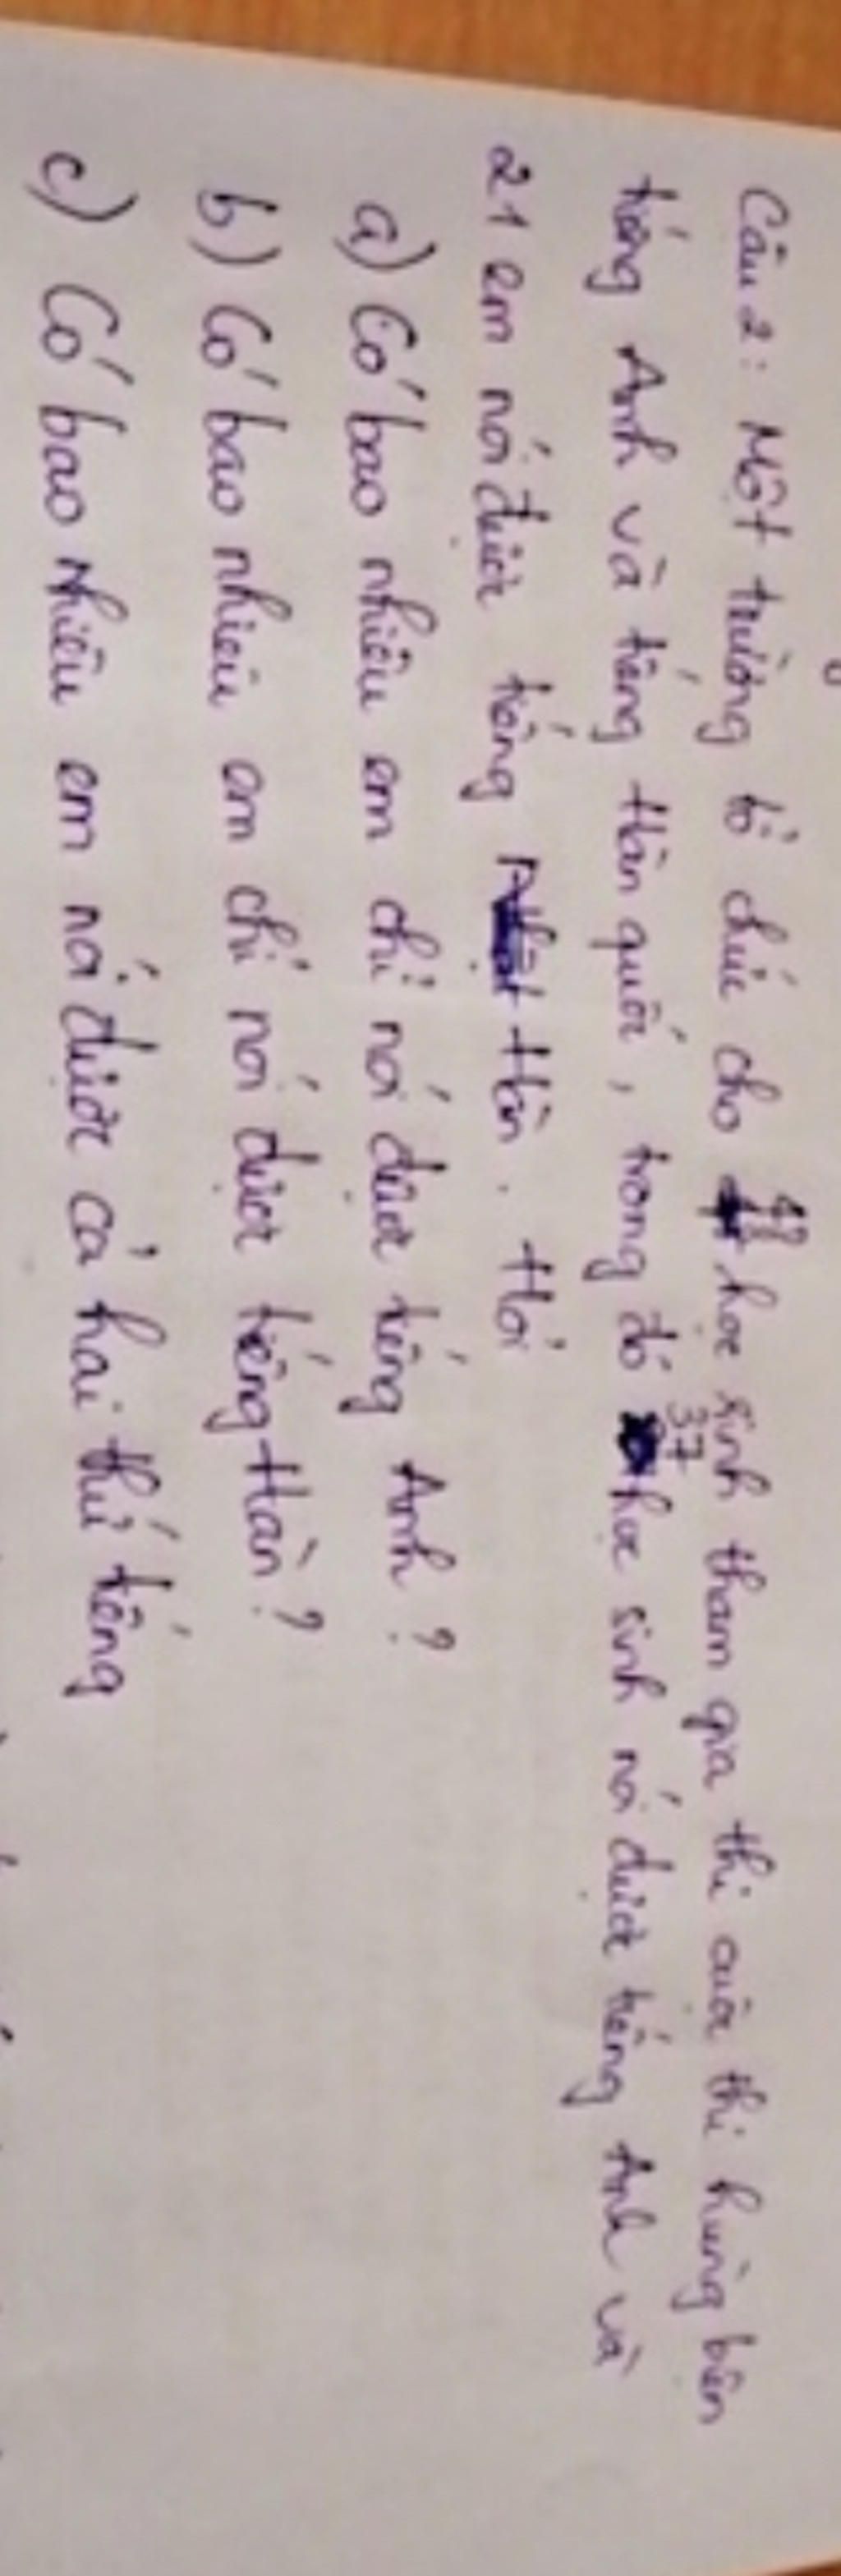 Câu 2: Một trường tổ chức cho 48 học sinh tham gia thi cuộc thi hùng biện
tiếng Anh và tiếng Hàn quốc, trong đó 37 học sinh nói được tiếng Anh và
21 em nói được tiếng Hàn. Hỏi
a) Có bao nhiêu em chỉ nói được tiếng Anh?
b) Có bao nhiêu em chỉ nói được tiếng Hàn?
c) Có bao nhiêu em nói được cả hai thứ tiếng